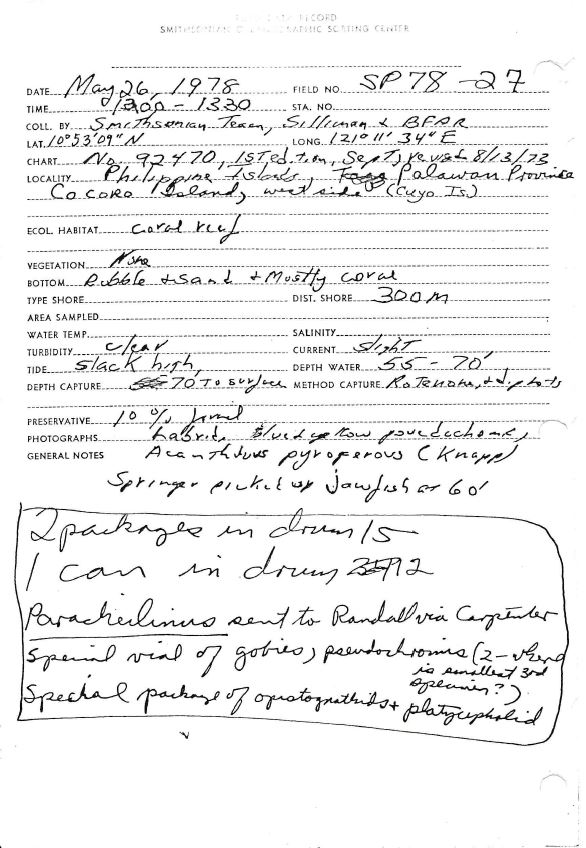 RECORD
SMITHSONIAN OCEANOGRAPHIC SORTING CENTER
DATE May 26, 1978 FIELD NO. SP78-27
TIME 1200 - 1330 STA. NO.
COLL. BY Smithsonian Team, Silliman + BFAR
LAT. 10°53'09" N LONG. 121°11' 34" E
CHART No. 92470, 1st Edition, Sept, revised 8/13/73
LOCALITY Philippine Islands, Palawan Province
Cocoro Island, west side (Cuyo Is.)
ECOL. HABITAT coral reef
VEGETATION None
BOTTOM Rubble + sand + Mostly coral
TYPE SHORE DIST. SHORE 300 m
AREA SAMPLED
WATER TEMP. SALINITY
TURBIDITY clear CURRENT slight
TIDE slack high, DEPTH WATER 55 - 70'
DEPTH CAPTURE 70 to surface METHOD CAPTURE Rotenone, + dipnets
PRESERVATIVE 10% formol
PHOTOGRAPHS Labrid, Blue + yellow pseudochromid,
GENERAL NOTES Acanthurus pyroferous (Knapp)
Springer picked up jawfish at 60'
2 packages in drum 15
1 can in drum 12
Paracheilinus sent to Randall via Carpenter
Special vial of gobies, pseudochromis (2 - where
is smallest 3rd
specimen?)
Special package of opistognathids + platycephalid